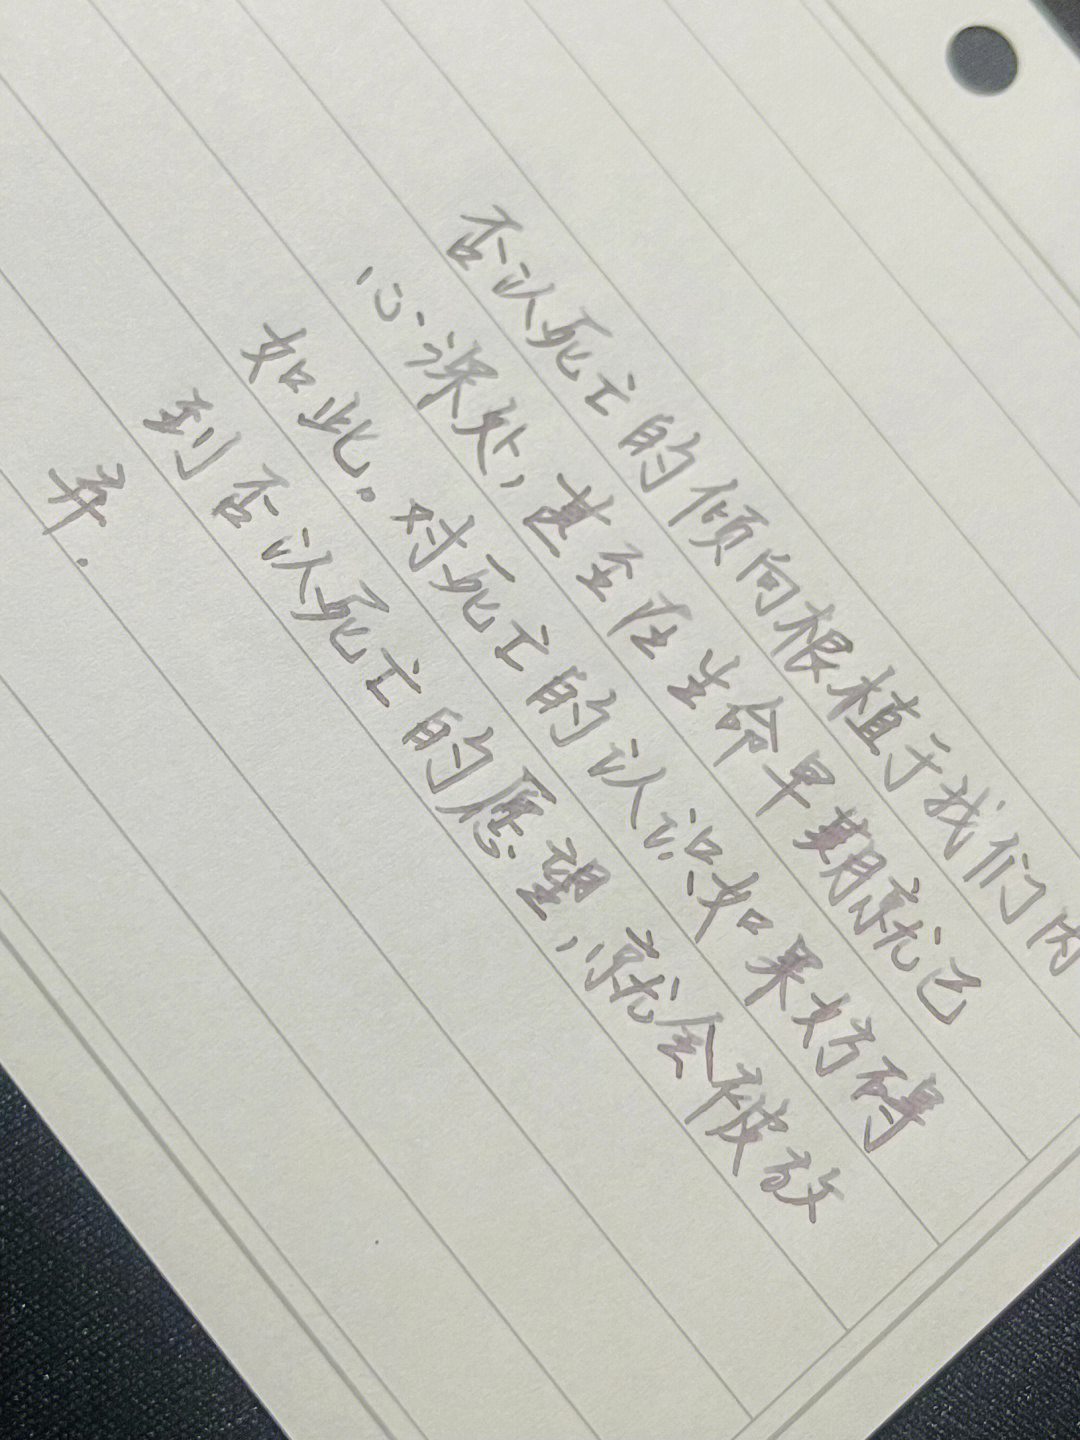 否认死亡的倾向根植于我们内
心深处，甚至在生命早期就已
如此。对死亡的认识如果妨碍
到否认死亡的愿望，就会被放
弃.